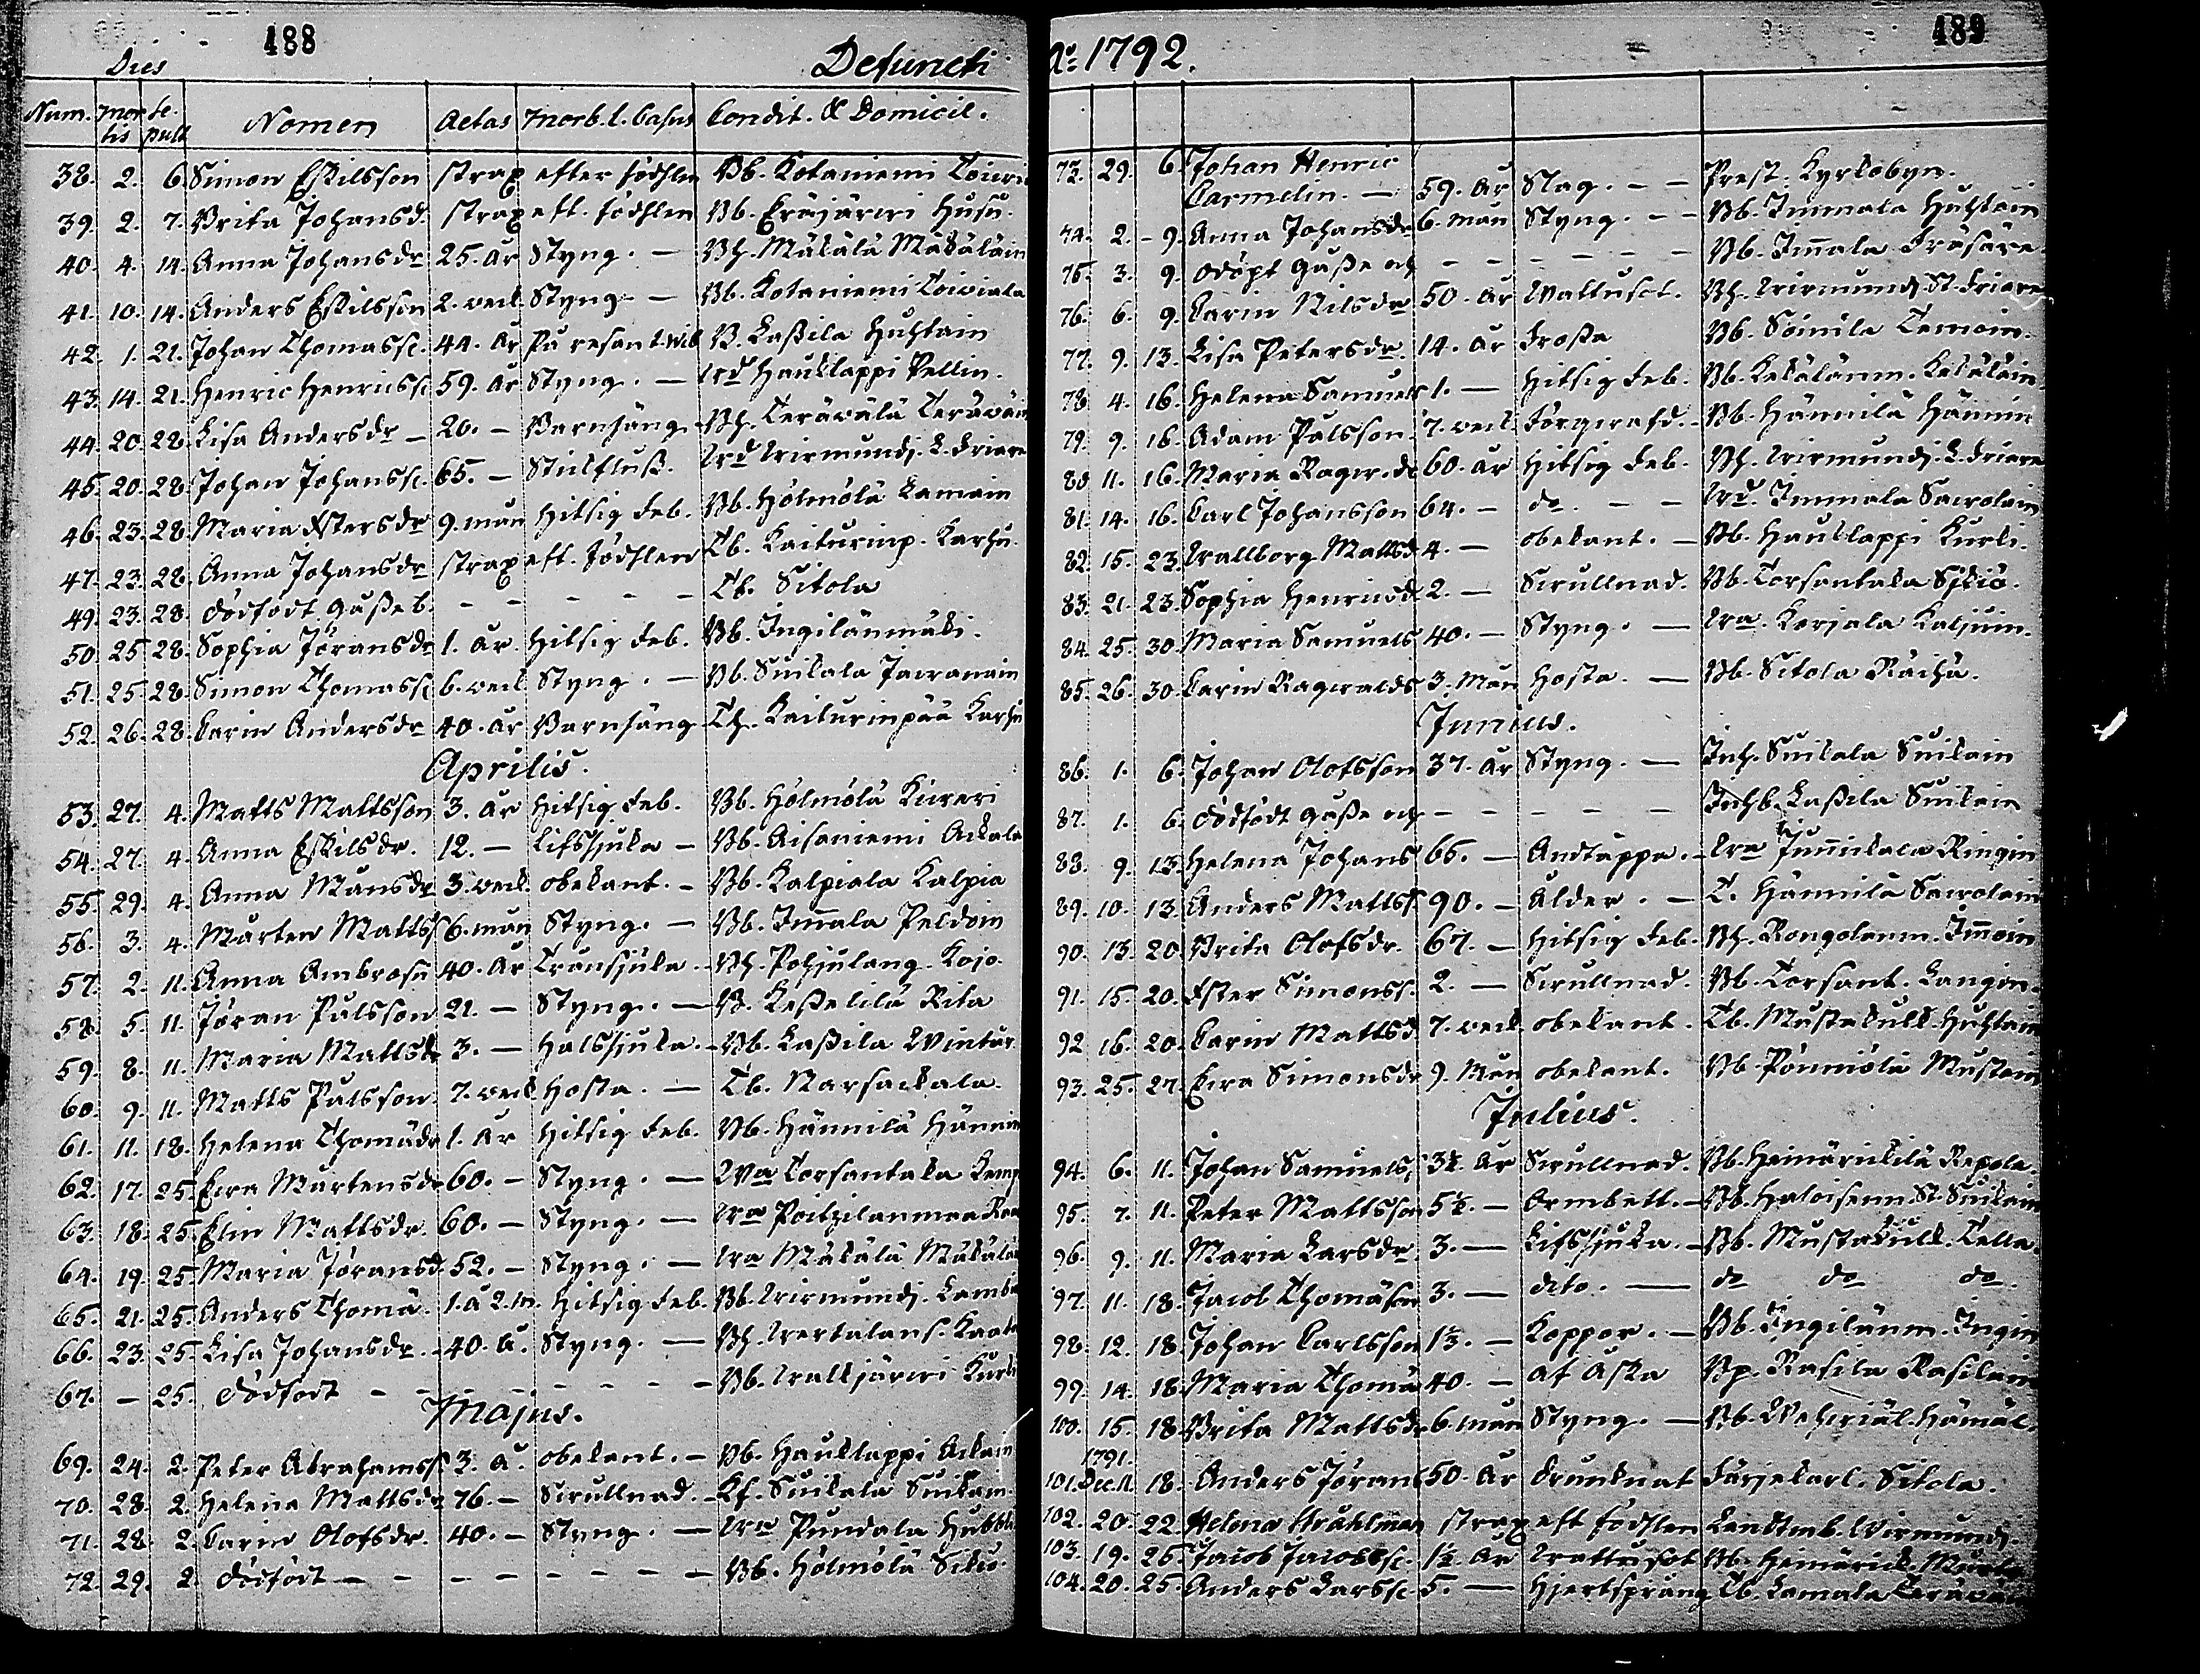 488
Dies Defuncti
Num. mortis sepult Nomen Aetas Morb. l. Casus Condit. & Domicil.
38. 2. 6. Simon Eskilsson strax efter födslen Bb. Kotaniemi
39. 2. 7. Brita Johansd. strax eft. födslen Bb. Eräjärvi Husu.
40. 4. 14. Anna Johansdr 25. år Styng. — Bh. Mäkälä Mäkäläin
41. 10. 14. Anders Eskilsson 2. veck. Styng. — Bb. Kotaniemi Toiviala
42. 1. 21. Johan Thomasss. 44. år På resan t. Wib B. Lassila Huhtain
43. 14. 21. Henric Henricss. 59. år Styng. — Haukkappi Pellin.
44. 20. 28. Lisa Andersdr — 20. — Barnsäng. Bh. Terävälä Teräväin
45. 20. 28. Johan Johanss. 65. — Stickfluss. Virmundj. L.
46. 23. 28. Maria Estersdr 9. mån Hitsig feb. Bb. Hölmölä Lamain
47. 23. 28. Anna Johansdr strax eft. födslen Tb. Kaiturinp. Karhu.
49. 23. 28. dödfödt gosseb. — — — — — Tb. Sitola
50. 25. 28. Sophia Jöransdr 1. år. Hitsig feb. Bb. Ingilänmäki.
51. 25. 28. Simon Thomasss. 6. veck Styng. — Bb. Suikala Javanain
52. 26. 28. Carin Andersdr 40. år Barnsäng Th. Kaiturinpää Karhu
Aprilis.
53. 27. 4. Matts Mattsson 3. år Hitsig feb. Bb. Hölmölä Kiveri
54. 27. 4. Anna Eskilsdr. 12. — Lifssjuka — Bb. Aisaniemi Ackala
55. 29. 4. Anna Månsdr 3. veck. obekant. — Bb. Kalpiala Kalpia
56. 3. 4. Mårten Matts 6. mån Styng. — Bb. Immala Peldoin
57. 2. 11. Anna Ambrosii 40. år Trånsjuka. — Bh. Pohjulang. Kojo.
58. 5. 11. Jöran Pålsson. 21. — Styng. — B. Kesselilä Rita
59. 8. 11. Maria Mattsdr 3. — Halssjuka. — Bb. Lassila Wintur.
60. 9. 11. Matts Pålsson. 7. veck Hosta. — Tb. Narsackala.
61. 11. 18. Helena Thomädr 1. år Hitsig feb. Bb. Hännilä Hännin
62. 17. 25. Eva Mårtensdr 60. — Styng. — Torsantaka
63. 18. 25. Elin Mattsdr. 60. — Styng. — Poitzilanmaa
64. 19. 25. Maria Jöransd. 52. — Styng. — Mäkälä Mäkälä
65. 21. 25. Anders Thomä. 1. å 2. m. Hitsig feb. Bb. Virmundj. Lamb
66. 23. 25. Lisa Johansdr. — 40. å. Styng. — Bh.
67. — 25. dödfödt — — — — — Bb. Valkjärvi Kurk
Majus.
69. 24. 2. Peter Abrahamss 3. å. obekant. — Bb. Haukkappi Ackain
70. 28. 2. Helena Mattsdr 76. — Svullnad. — Suikala Suikain.
71. 28. 2. Carin Olofsdr. 40. — Styng. — Pundala
72. 29. 2. dödfödt — — — — — Bb. Hölmölä
489
Ao: 1792.
73. 29. 6. Johan Henric
Carmelin. — 59. år Slag. — — Prest. Kyrkobyn.
74. 2. — 9. Anna Johansdr 6. mån Styng. — — Bb. Immala Huhtain
75. 3. 9. odöpt gosse — — — — — Bb. Immala
76. 6. 9. Carin Nilsdr 50. år Wattusot. Bh. Virmundj St.
77. 9. 13. Lisa Petersdr. 14. år Frossa Bb. Soinila Temoin.
78. 4. 16. Helena Samuels 1. — Hitsig feb. Bb. Kekälänm. Kekäläin
79. 9. 16. Adam Pålsson. 7. veck. Bb. Hännilä Hännin
80. 11. 16. Maria Ragv.dr 60. år Hitsig feb. Bh. Virmundj. L.
81. 14. 16. Carl Johansson 64. — do. — — Immala Savolain
82. 15. 23. Wallborg Mattsd. 4. — obekant. — Bb. Haukkappi Kurki.
83. 21. 23. Sophia Henricsd. 2. — Svullnad. Bb. Torsantaka
84. 25. 30. Maria Samuels 40. — Styng. — Korjala Kaljuin.
85. 26. 30. Carin Ragvalds 3. Mån Hosta. — Bb. Sitola Räihä.
Junius.
86. 1. 6. Johan Olofsson 37. år Styng. — Inh. Suikala Suikain
87. 1. 6. dödfödt gosse — — — — — Inhb. Lassila Suikain
88. 9. 13. Helena Johans 66. — Andtäppa. — Junnikala Ringin
89. 10. 13. Anders Mattss 90. — Ålder. — T. Hännilä Savolain
90. 13. 20. Brita Olofsdr. 67. — Hitsig feb. Bh. Rongolanm. Immoin
91. 15. 20. Ester Simonss. 2. — Svullnad. Bb. Torsant. Langin.
92. 16. 20. Carin Mattsd. 7. veck obekant. Tb. Mustakulk. Huhtain
93. 25. 27. Eva Simonsdr 9. Mån obekant. Bb. Pönniölä Mustoin
Julius.
94. 6. 11. Johan Samuels. 3½. år Svullnad. Bb. Heinärickilä Repola.
95. 7. 11. Peter Mattsson 5½. — Ormbett. — Bb. St. Suikain
96. 9. 11. Maria Larsdr. 3. — Lifssjuka. — Bb. Mustakulk. Telle.
97. 11. 18. Jacob Thomäson 3. — dito. — do do do.
98. 12. 18. Johan Carlsson 1½. — Koppor. — Bb. Ingilänm. Ingin
99. 14. 18. Maria Thomä 40. — af Åska Bp. Rasila Rasilain
100. 15. 18. Brita Mattsdr 6. mån Styng. — Bb.
1791.
101. Dec. 11. 18. Anders Jörans 50. år drunknat Färjekarl. Sitola.
102. 20. 22. Helena Stråhlman strax eft födslen Landtmb. Wirmundj.
103. 19. 25. Jacob Jacobss. 1½. år Wattusot Bb. Heinärick.
104. 20. 25. Anders Larss. 5. — Hjertsprång Tb. Lamala